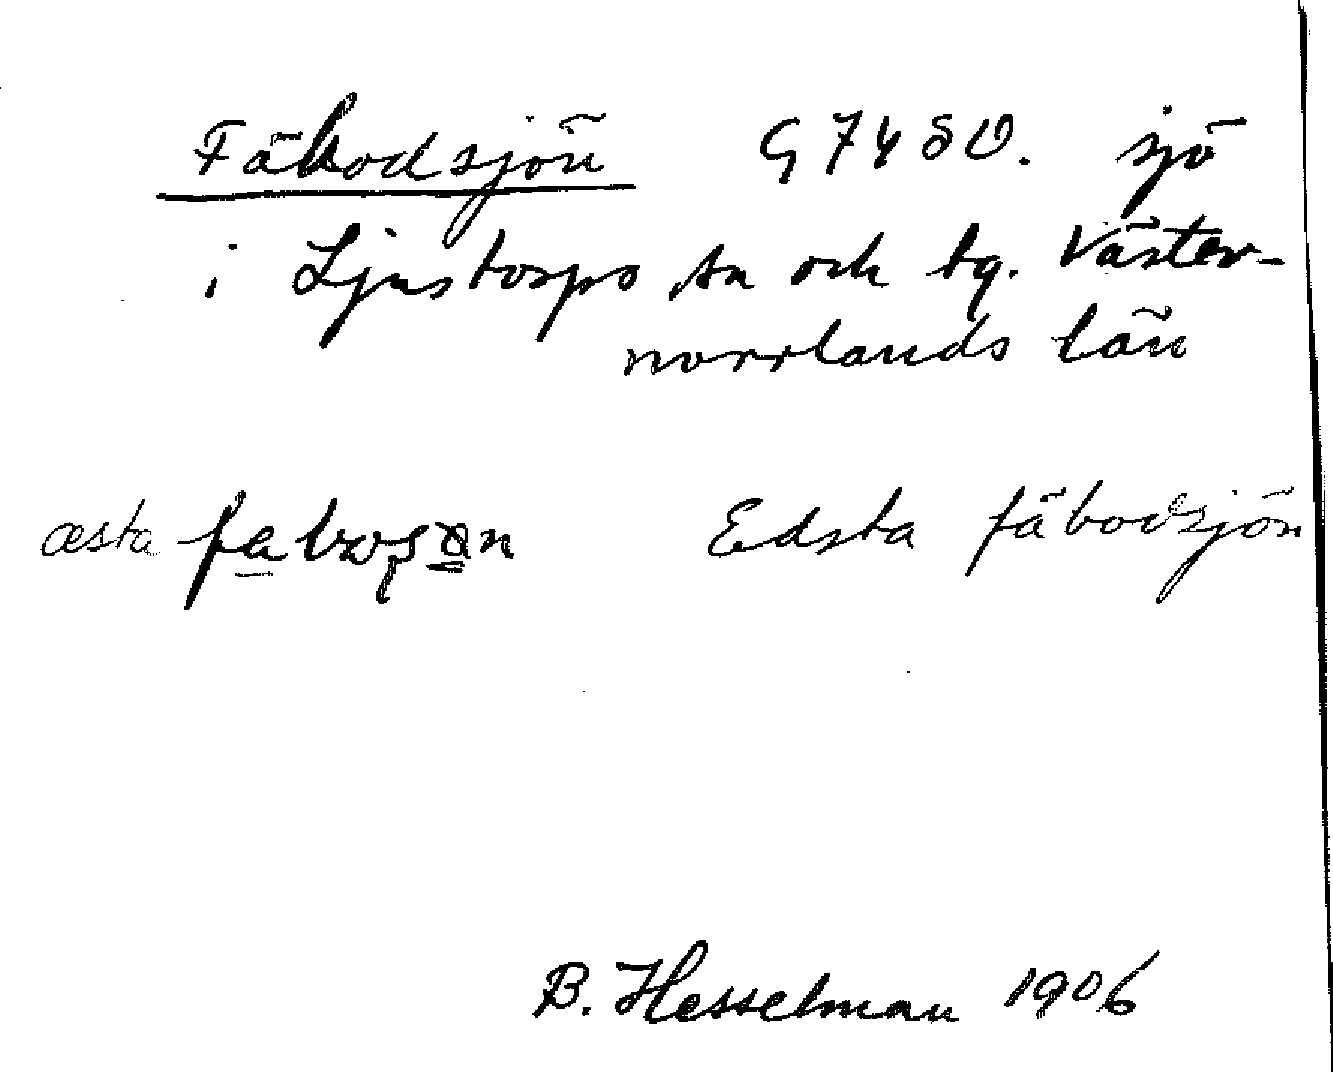 Fäbodsjön G74SO. sjö
i Ljustorps sn och tg. Väster-
norrlands län
æsta Edsta fäbodsjön
B. Hesselman 1906